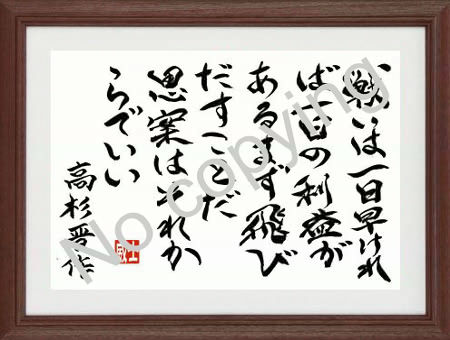 戦いは一日早けれ
ば一日の利益が
あるまず飛び
だすことだ
思案はそれか
らでいい
高杉晋作
No copying